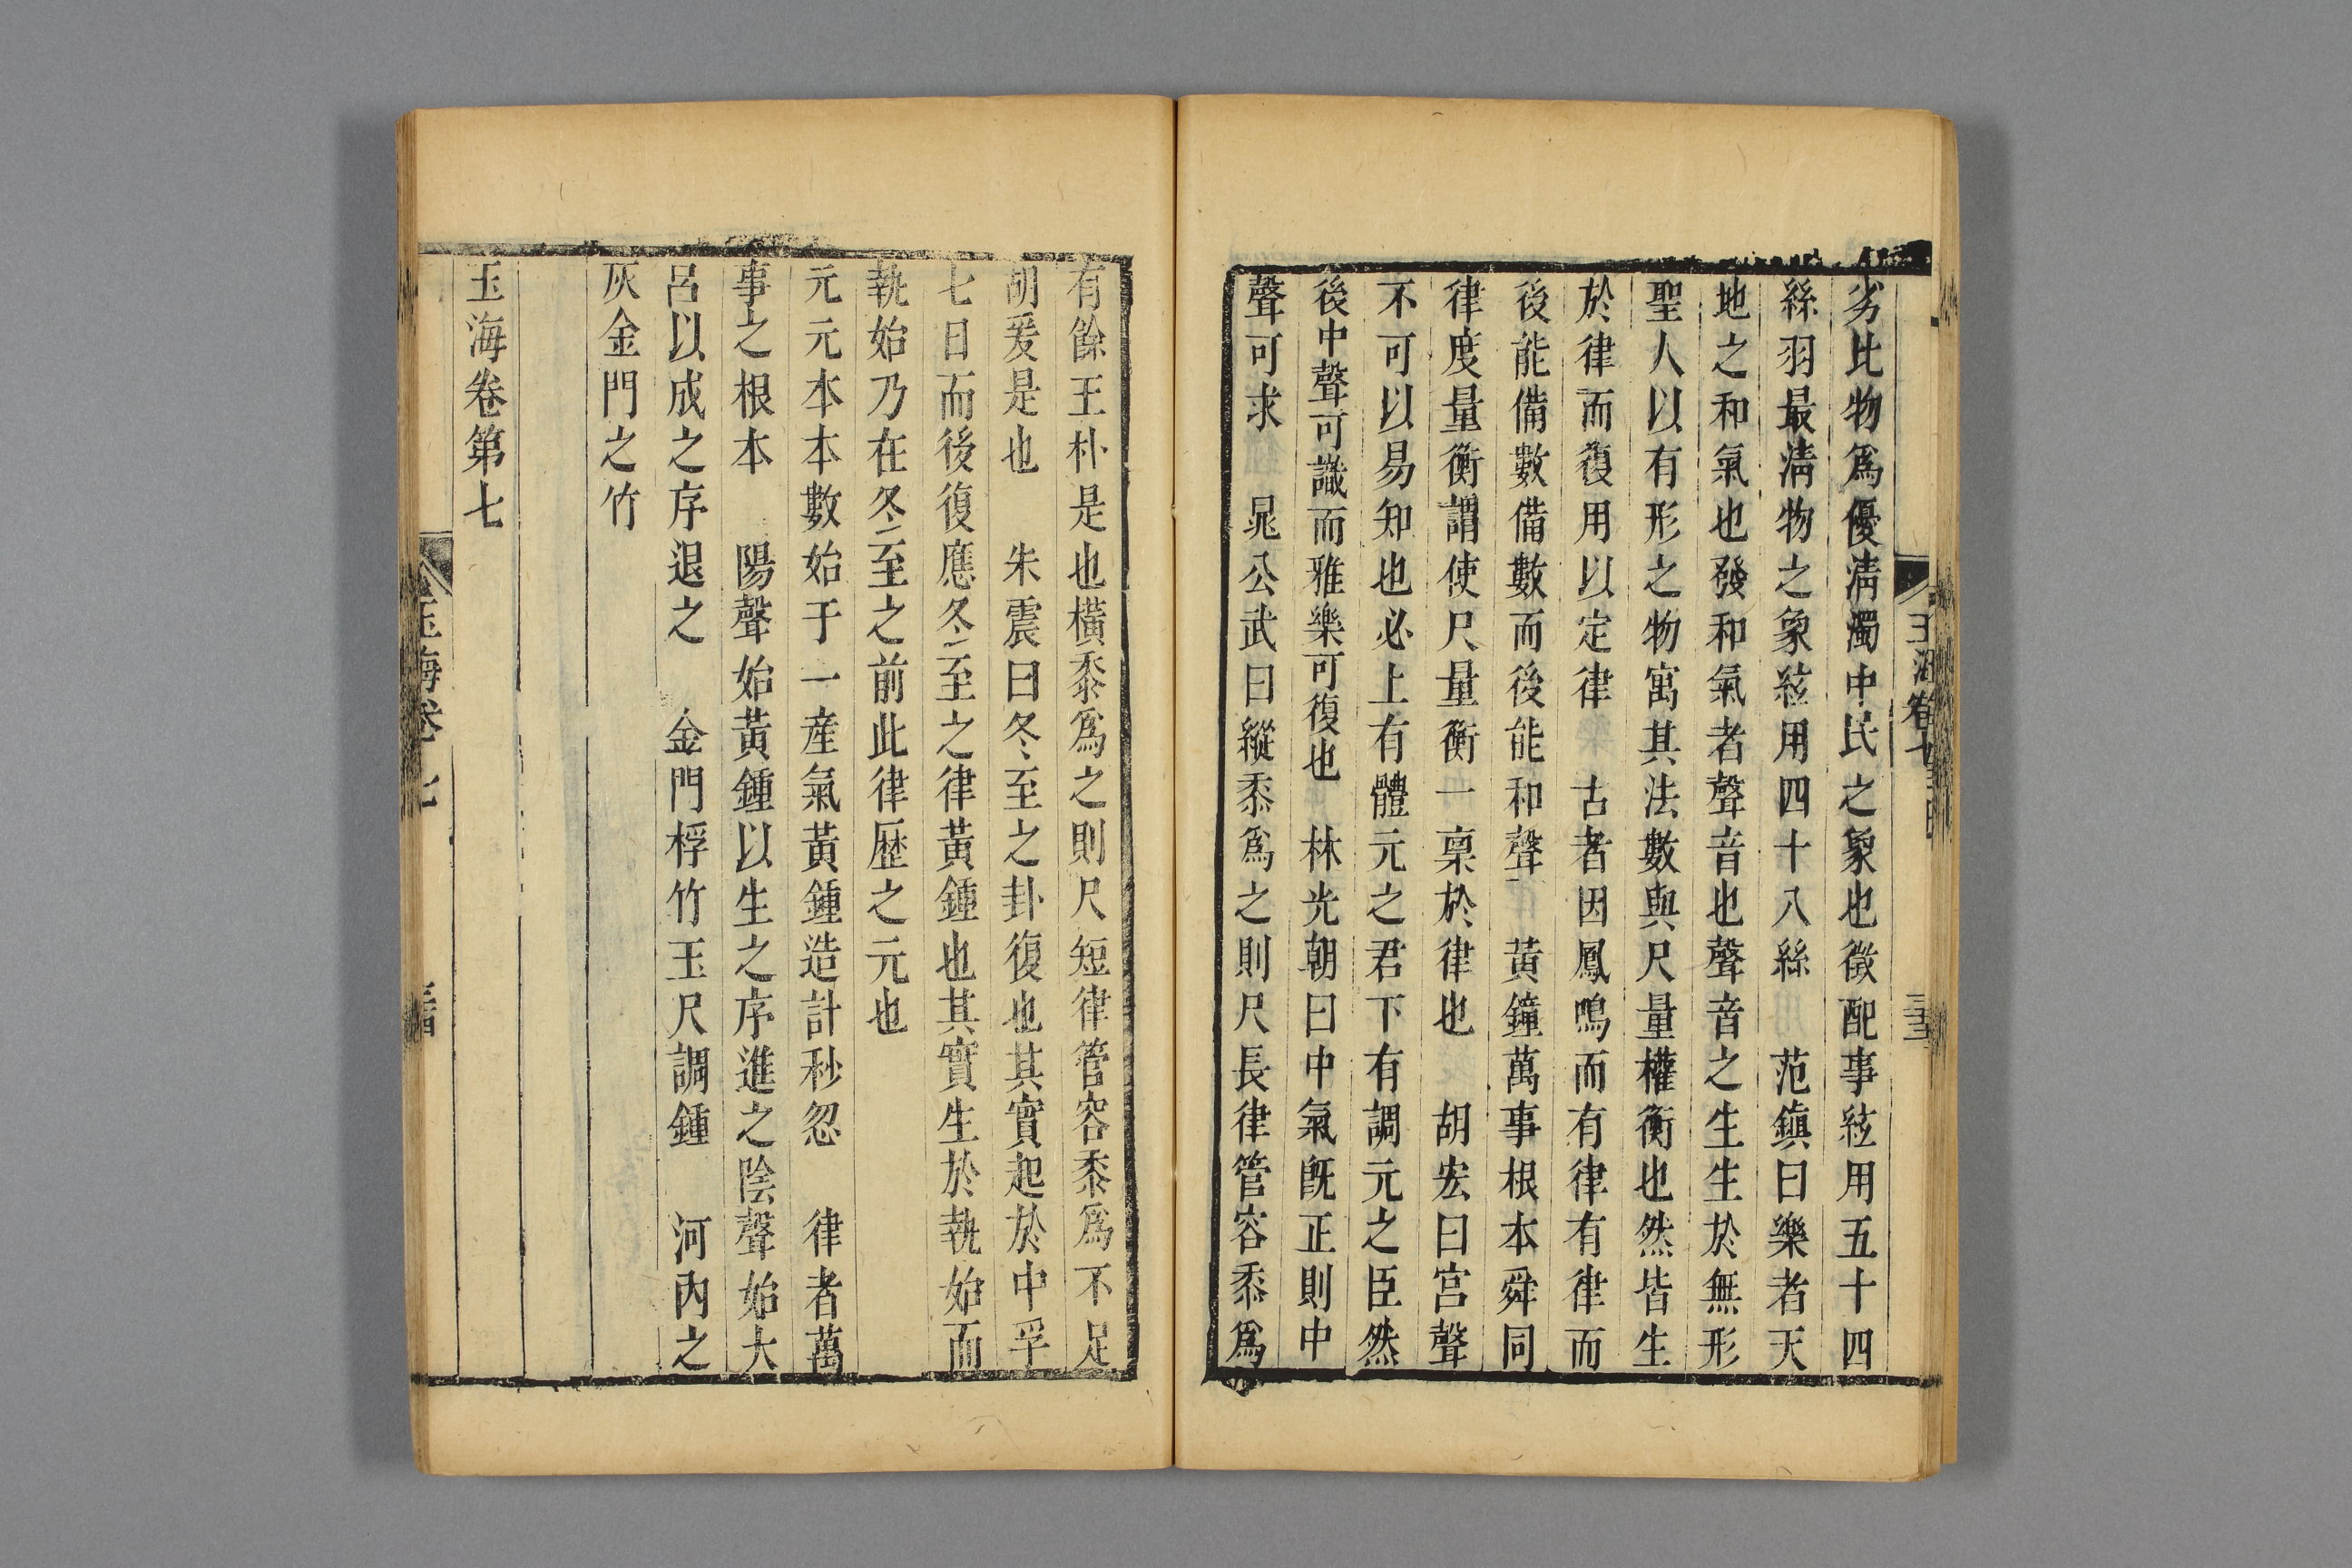 劣比物爲優淸濁中民之象也徵配事絃用五十四
絲羽最淸物之象絃用四十八絲　范鎭曰樂者天
地之和氣也發和氣者聲音也聲音之生生於無形
聖人以有形之物寓其法數與尺量權衡也然皆生
於律而復用以定律　古者因鳳鳴而有律有律而
後能備數備數而後能和聲　黃鐘萬事根本舜同
律度量衡謂使尺量衡一稟於律也　胡宏曰宮聲
不可以易知也必上有體元之君下有調元之臣然
後中聲可識而雅樂可復也　林光朝曰中氣旣正則中
聲可求　晁公武曰縱黍爲之則尺長律管容黍爲
有餘王朴是也橫黍爲之則尺短律管容黍爲不足
胡爰是也　朱震曰冬至之卦復也其實起於中孚
七日而後復應冬至之律黃鍾也其實生於執始而
執始乃在冬至之前此律歷之元也
元元本本數始于一產氣黃鍾造計秒忽　律者萬
事之根本　陽聲始黃鍾以生之序進之陰聲始大
呂以成之序退之　金門桴竹玉尺調鍾　河內之
灰金門之竹
玉海卷第七
玉海卷七